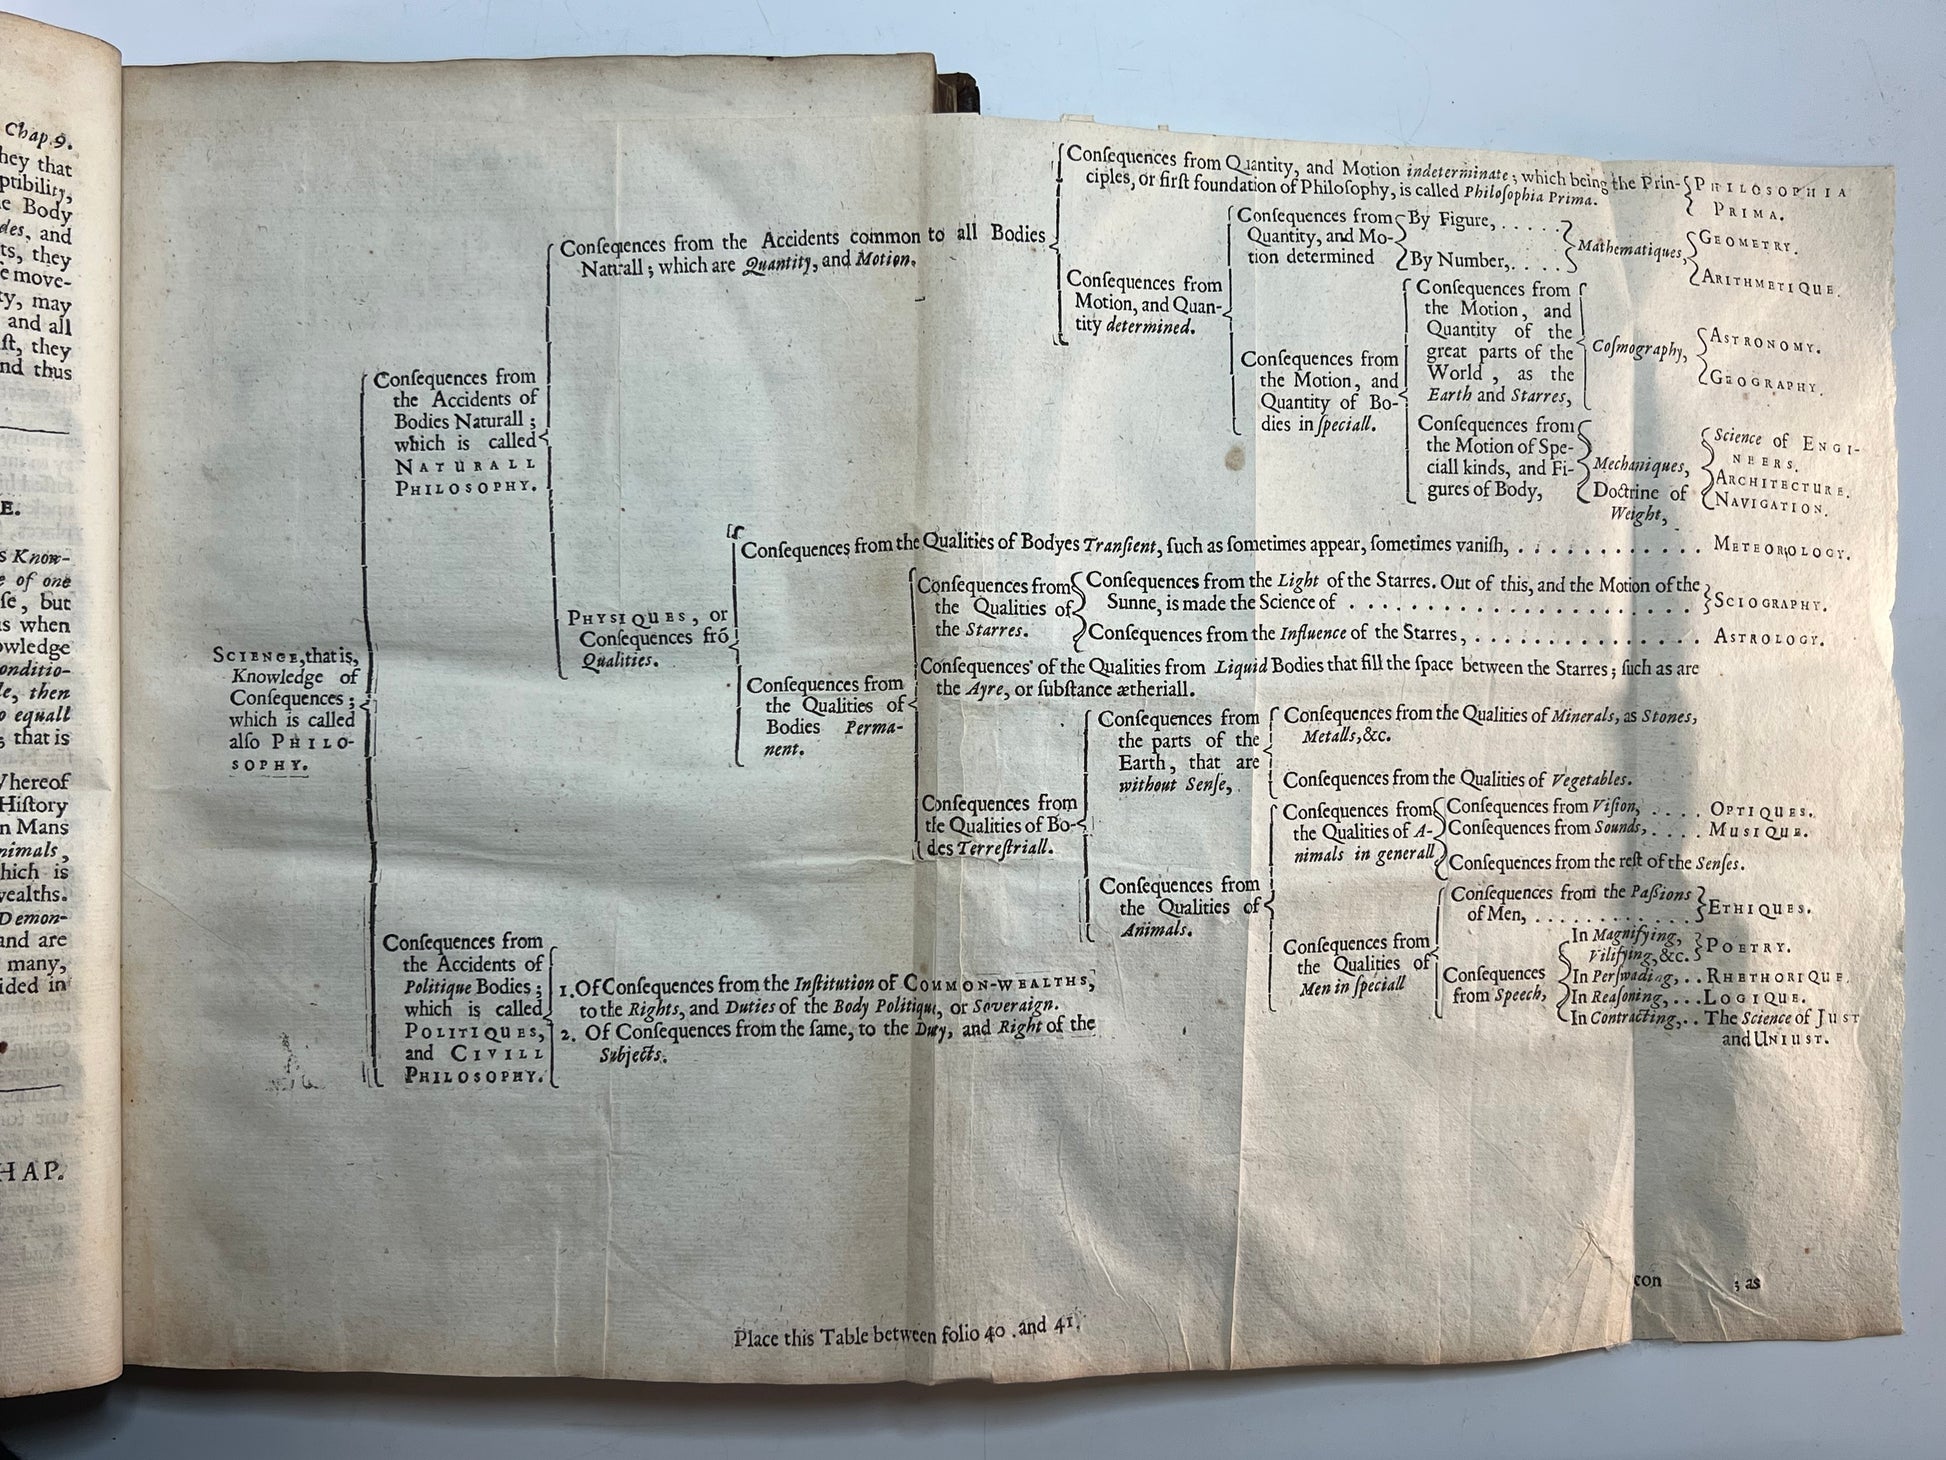 Chap.9.
hey that
ptibility,
e Body
des, and
ts, they
e move-
ty, may
and all
ſt, they
nd thus
E.
s Know-
e of one
ſe, but
s when
owledge
onditio-
le, then
o equall
; that is
Whereof
Hiſtory
n Mans
nimals,
hich is
wealths.
Demon-
and are
many,
ided in
HAP.
SCIENCE, that is,
Knowledge of
Conſequences;
which is called
alſo PHILO-
SOPHY.
Conſequences from
the Accidents of
Bodies Naturall;
which is called
NATURALL
PHILOSOPHY.
Conſequences from the Accidents common to all Bodies
Naturall; which are Quantity, and Motion.
Conſequences from Quantity, and Motion indeterminate; which being the Prin-
ciples, or firſt foundation of Philoſophy, is called Philoſophia Prima.
PHILOSOPHIA
PRIMA.
Conſequences from
Motion, and Quan-
tity determined.
Conſequences from
Quantity, and Mo-
tion determined
By Figure, . . . . .
By Number, . . . .
Mathematiques,
GEOMETRY.
ARITHMETIQUE.
Conſequences from
the Motion, and
Quantity of Bo-
dies in ſpeciall.
Conſequences from
the Motion, and
Quantity of the
great parts of the
World, as the
Earth and Starres,
Coſmography,
ASTRONOMY.
GEOGRAPHY.
Conſequences from
the Motion of Spe-
ciall kinds, and Fi-
gures of Body,
Mechaniques,
Doctrine of
Weight,
Science of ENGI-
NEERS.
ARCHITECTURE.
NAVIGATION.
PHYSIQUES, or
Conſequences frō
Qualities.
Conſequences from the Qualities of Bodyes Tranſient, ſuch as ſometimes appear, ſometimes vaniſh, . . . . . . . . . . . . METEOROLOGY.
Conſequences from
the Qualities of
Bodies Perma-
nent.
Conſequences from
the Qualities of
the Starres.
Conſequences from the Light of the Starres. Out of this, and the Motion of the
Sunne, is made the Science of . . . . . . . . . . . . . . . . . . . . . . .
SCIOGRAPHY.
Conſequences from the Influence of the Starres, . . . . . . . . . . . . . . . ASTROLOGY.
Conſequences of the Qualities from Liquid Bodies that fill the ſpace between the Starres; ſuch as are
the Ayre, or ſubſtance ætheriall.
Conſequences from
the Qualities of Bo-
des Terreſtriall.
Conſequences from
the parts of the
Earth, that are
without Senſe,
Conſequences from the Qualities of Minerals, as Stones,
Metalls, &c.
Conſequences from the Qualities of Vegetables.
Conſequences from
the Qualities of
Animals.
Conſequences from
the Qualities of A-
nimals in generall
Conſequences from Viſion, . . . . OPTIQUES.
Conſequences from Sounds, . . . . MUSIQUE.
Conſequences from the reſt of the Senſes.
Conſequences from
the Qualities of
Men in ſpeciall
Conſequences from the Paſsions
of Men, . . . . . . . . . . . .
ETHIQUES.
Conſequences
from Speech,
In Magnifying,
Vilifying, &c.
POETRY.
In Perſwading, . . RHETHORIQUE,
In Reaſoning, . . . LOGIQUE.
In Contracting, . . The Science of JUST
and UNIUST.
Conſequences from
the Accidents of
Politique Bodies;
which is called
POLITIQUES,
and CIVILL
PHILOSOPHY.
1. Of Conſequences from the Inſtitution of COMMON-WEALTHS,
to the Rights, and Duties of the Body Politique, or Soveraign.
2. Of Conſequences from the ſame, to the Duty, and Right of the
Subjects.
con ; as
Place this Table between folio 40. and 41.